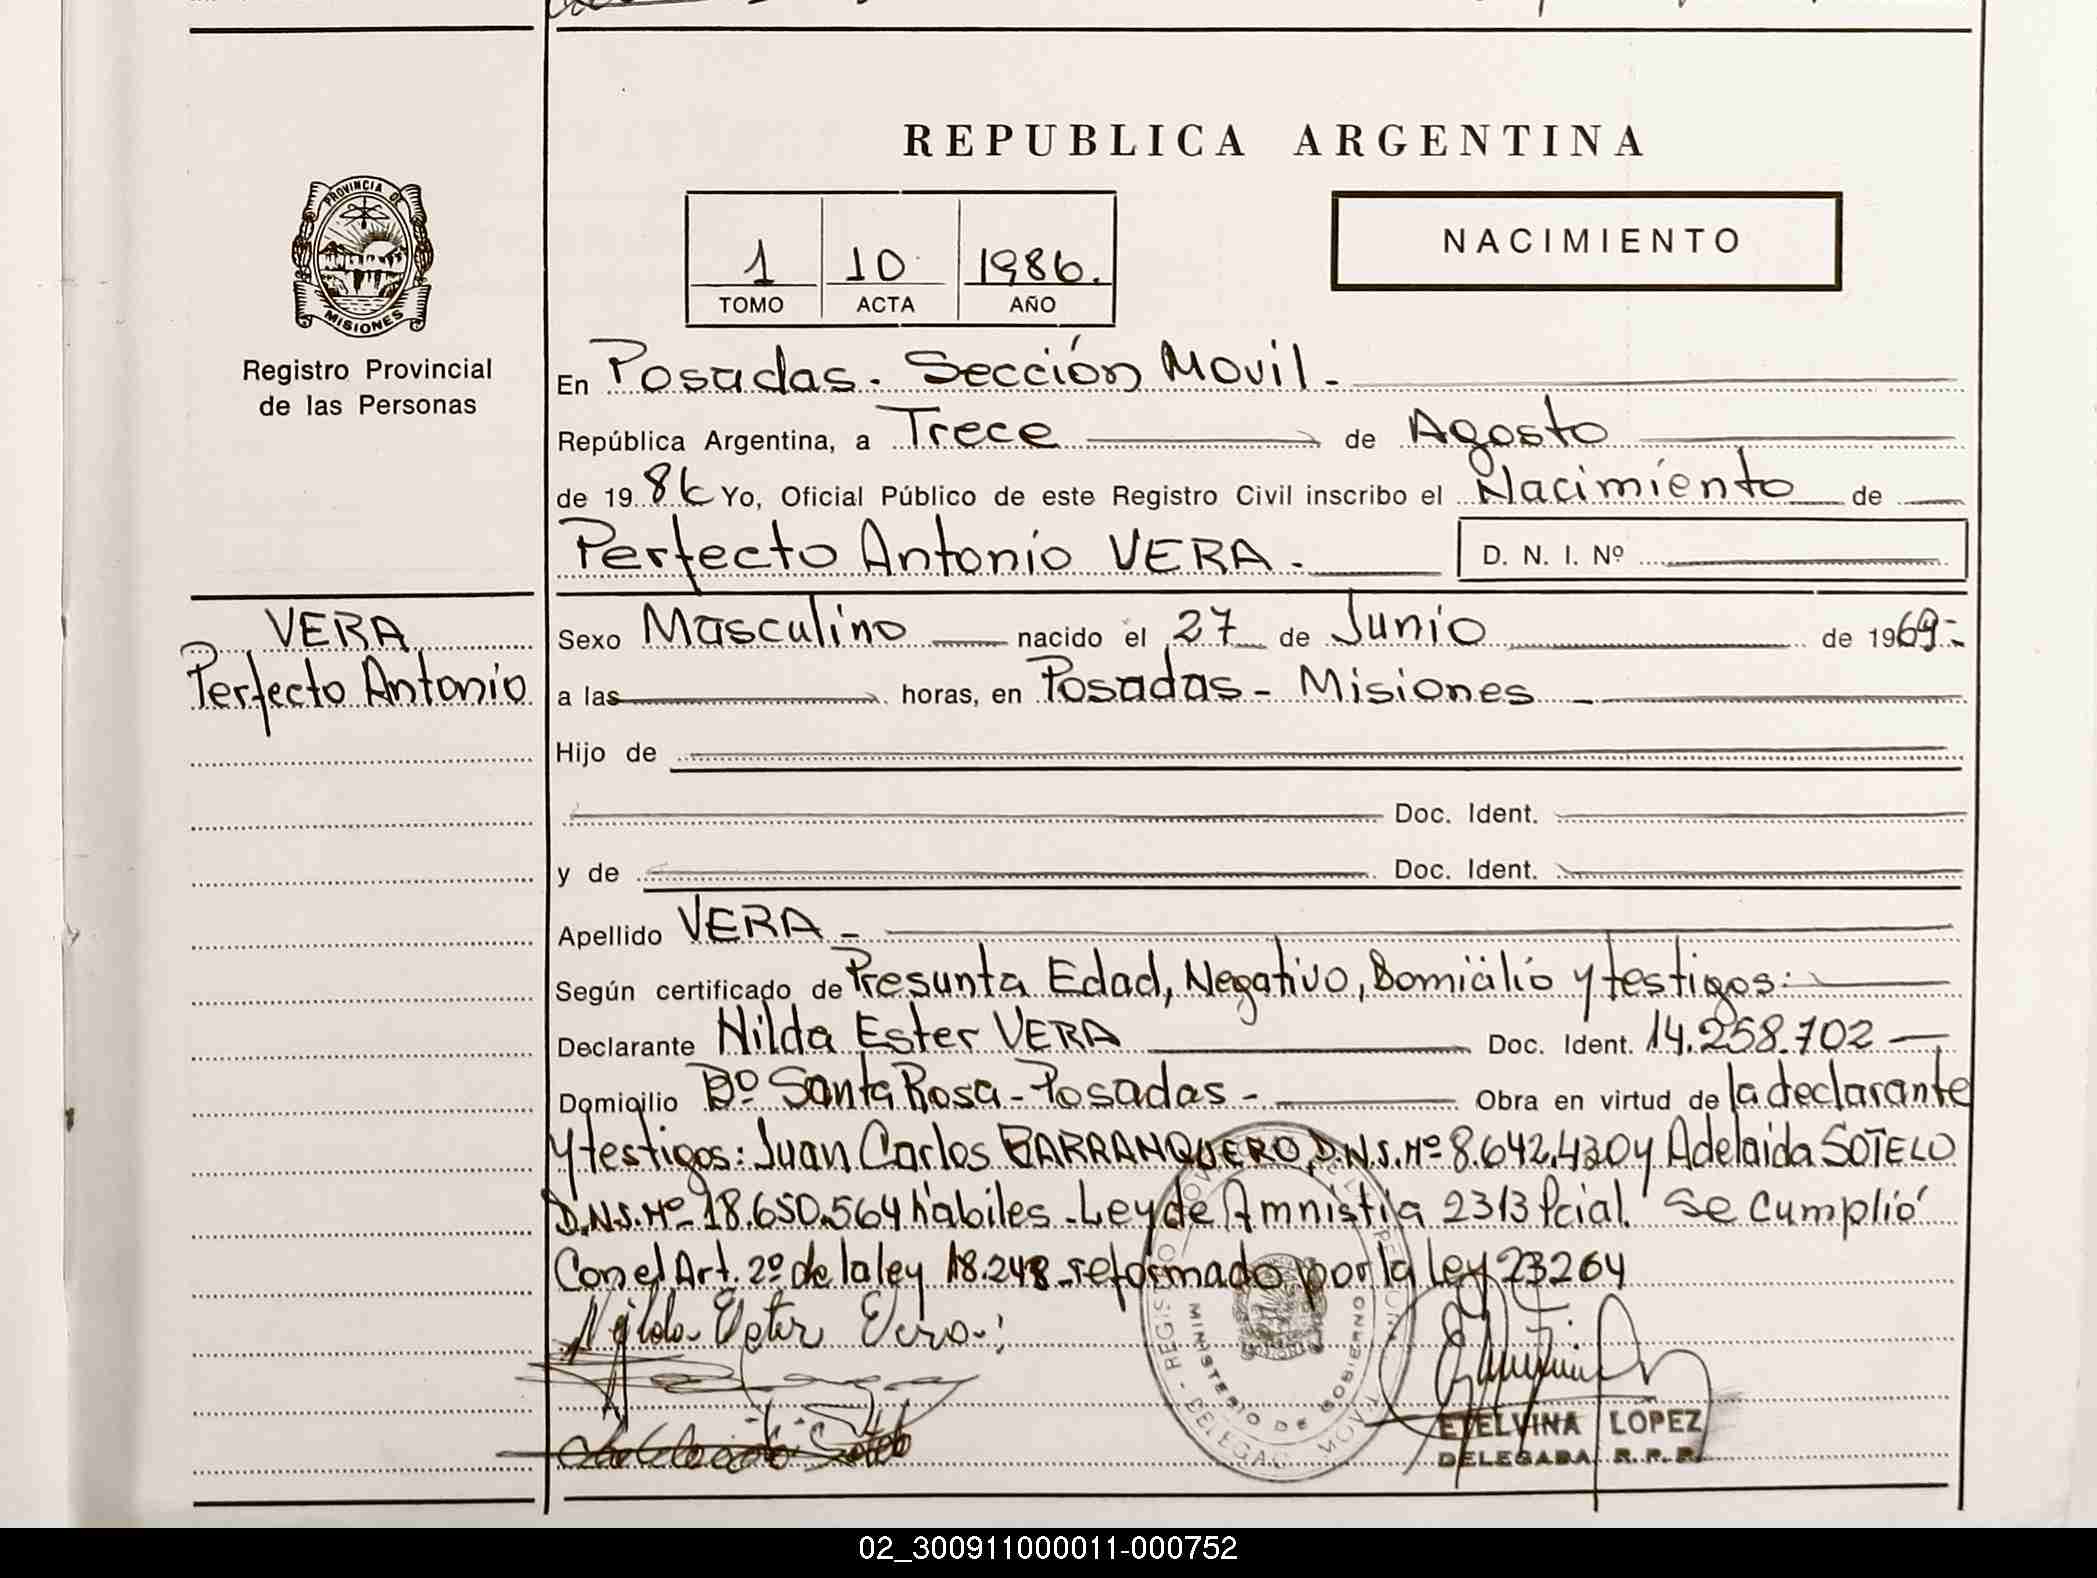 REPUBLICA ARGENTINA
PROVINCIA DE
MISIONES
Registro Provincial
de las Personas
1 10 1986.
TOMO ACTA AÑO
NACIMIENTO
En Posadas. Sección Movil.
República Argentina, a Trece de Agosto
de 19 86 Yo, Oficial Público de este Registro Civil inscribo el Nacimiento de
Perfecto Antonio VERA. D. N. I. Nº
VERA
Perfecto Antonio
Sexo Masculino nacido el 27 de Junio de 1969.-
a las horas, en Posadas - Misiones
Hijo de
Doc. Ident.
y de Doc. Ident.
Apellido VERA -
Según certificado de Presunta Edad, Negativo, Domicilio y testigos:
Declarante Nilda Ester VERA Doc. Ident. 14.258.702
Domicilio Bº Santa Rosa - Posadas - Obra en virtud de la declarante
y testigos: Juan Carlos BARRANQUERO, D.N.I. Nº 8.642.430 y Adelaida SOTELO
D.N.I. Nº 18.650.564 hábiles - Ley de Amnistia 2313 Pcial. Se cumplió
Con el Art. 2º de la ley 18.248 reformado por la Ley 23264
Nilda Ester Vera
MINISTERIO DE GOBIERNO
ETELVINA LOPEZ
DELEGADA R.P.P.
02_300911000011-000752